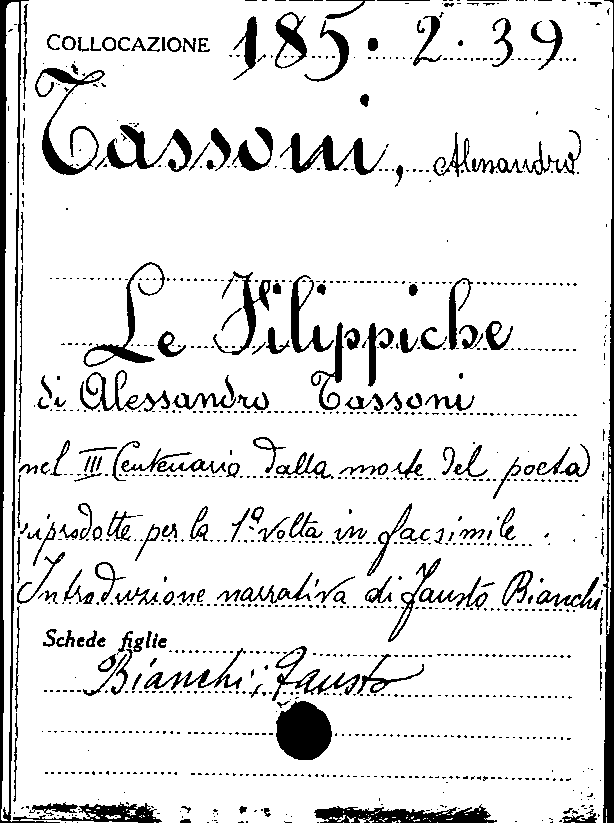 COLLOCAZIONE 185. 2. 39
Tassoni, Alessandro
Le Filippiche
di Alessandro Tassoni
nel III Centenario dalla morte del poeta
riprodotte per la 1ª volta in facsimile.
Introduzione narrativa di Fausto Bianchi
Schede figlie
Bianchi, Fausto